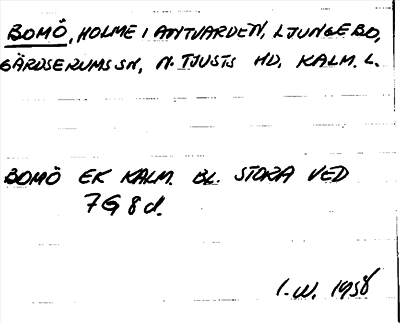 BOMÖ, HOLME I ANTVARDEN, LJUNGEBO,
GÄRDSERUMS SN, N. TJUSTS HD, KALM. L.
BOMÖ EK KALM. BL. STORA VED
7G 8d.
I.W. 1958